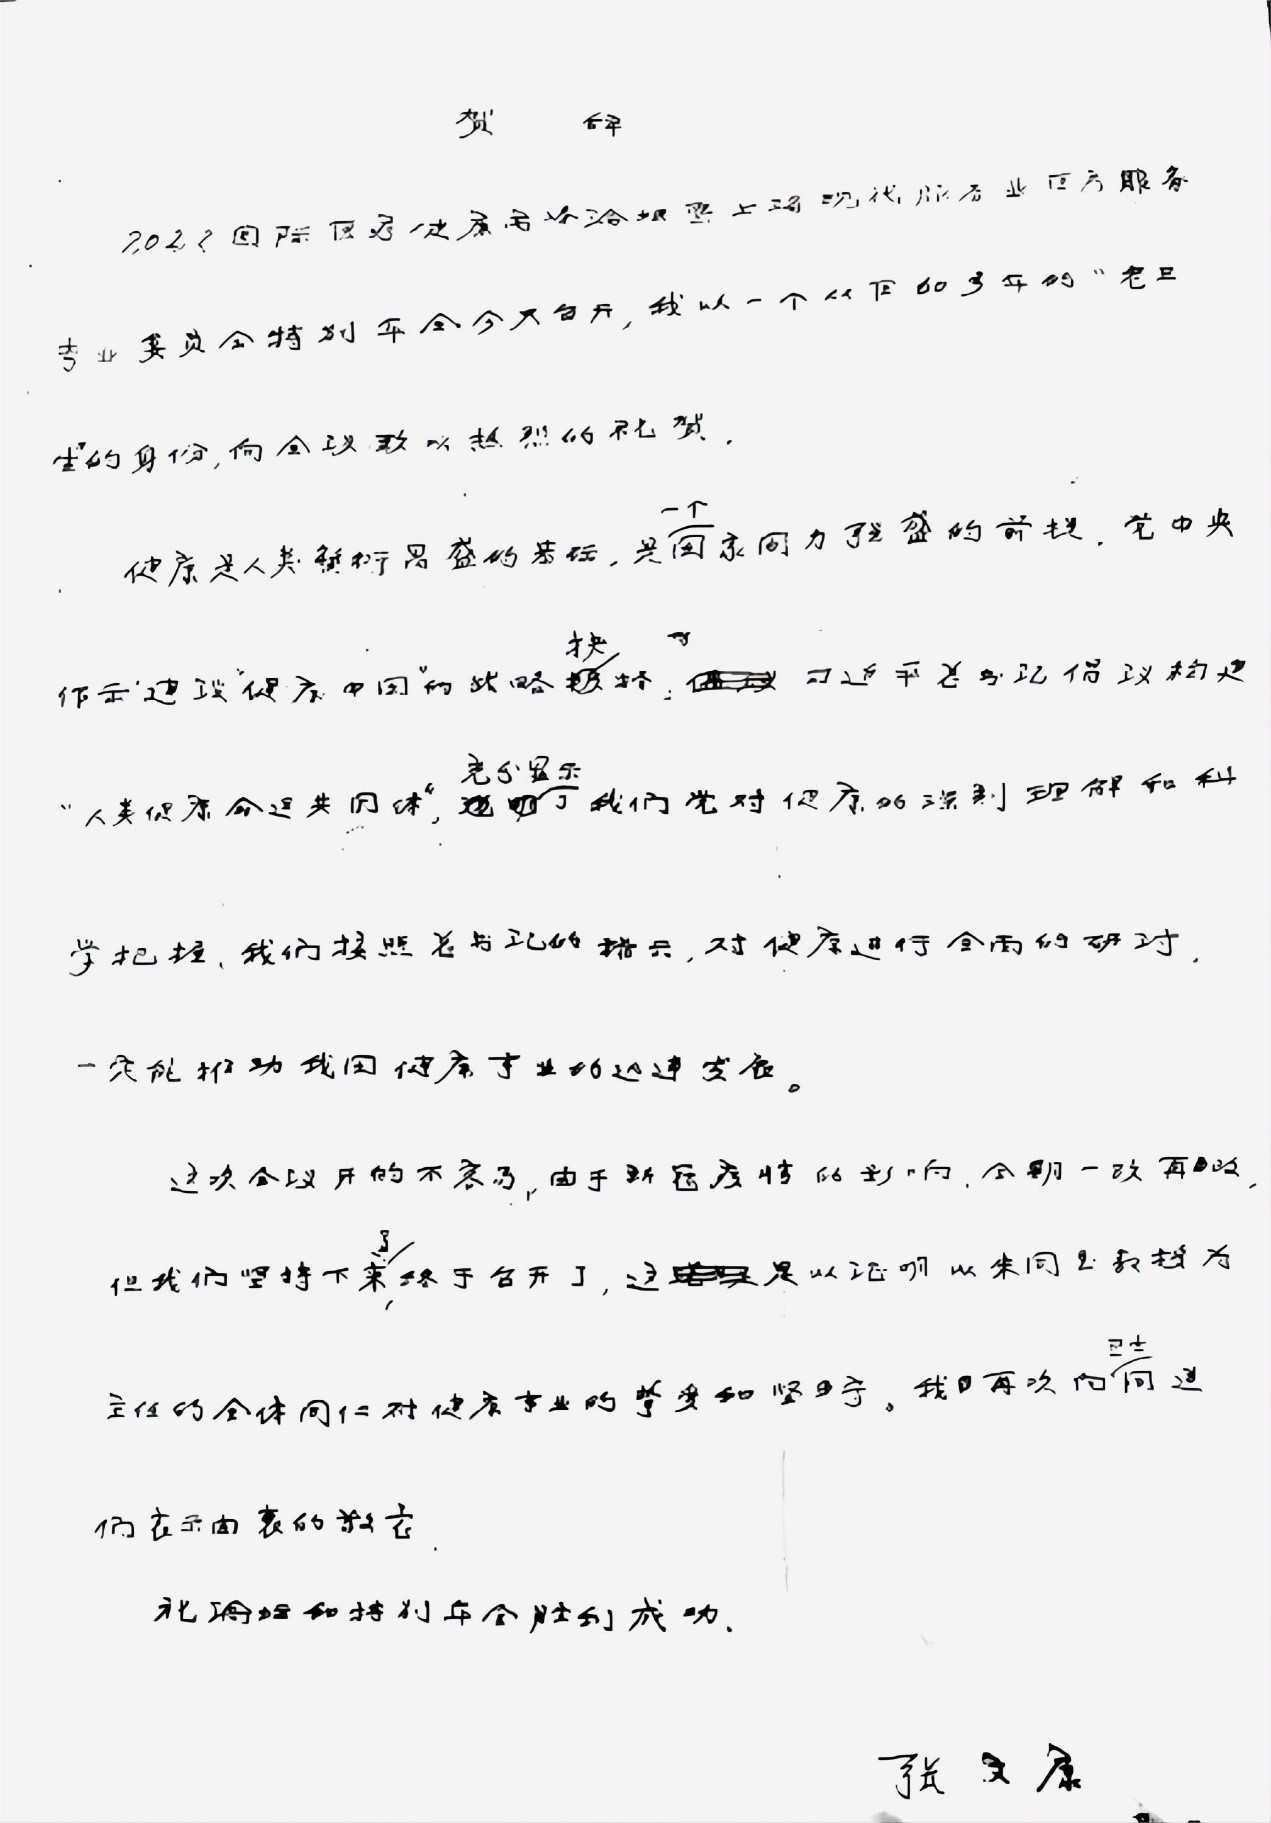 贺 辞
2022国际医学健康高峰论坛暨上海现代服务业医疗服务
专业委员会特别年会今天召开,我以一个从医60多年的“老卫
生”的身份,向会议致以热烈的祝贺.
健康是人类繁衍昌盛的基标,是一个国家国力强盛的前提.党中央
作出建设“健康中国”的战略抉择,习近平总书记倡议构建
“人类健康命运共同体”,充分显示了我们党对健康的深刻理解和科
学把握、我们按照总书记的指示,对健康进行全面的研讨.
一定能推动我国健康事业的迅速发展。
这次会议开的不容易,由于新冠疫情的影响,会期一改再改,
但我们坚持下来了,终于召开了,这足以证明以朱同玉教授为
主任的全体同仁对健康事业的挚爱和坚守。我再次向卫生同道
们表示由衷的敬意.
祝论坛和特别年会胜利成功.
张文康